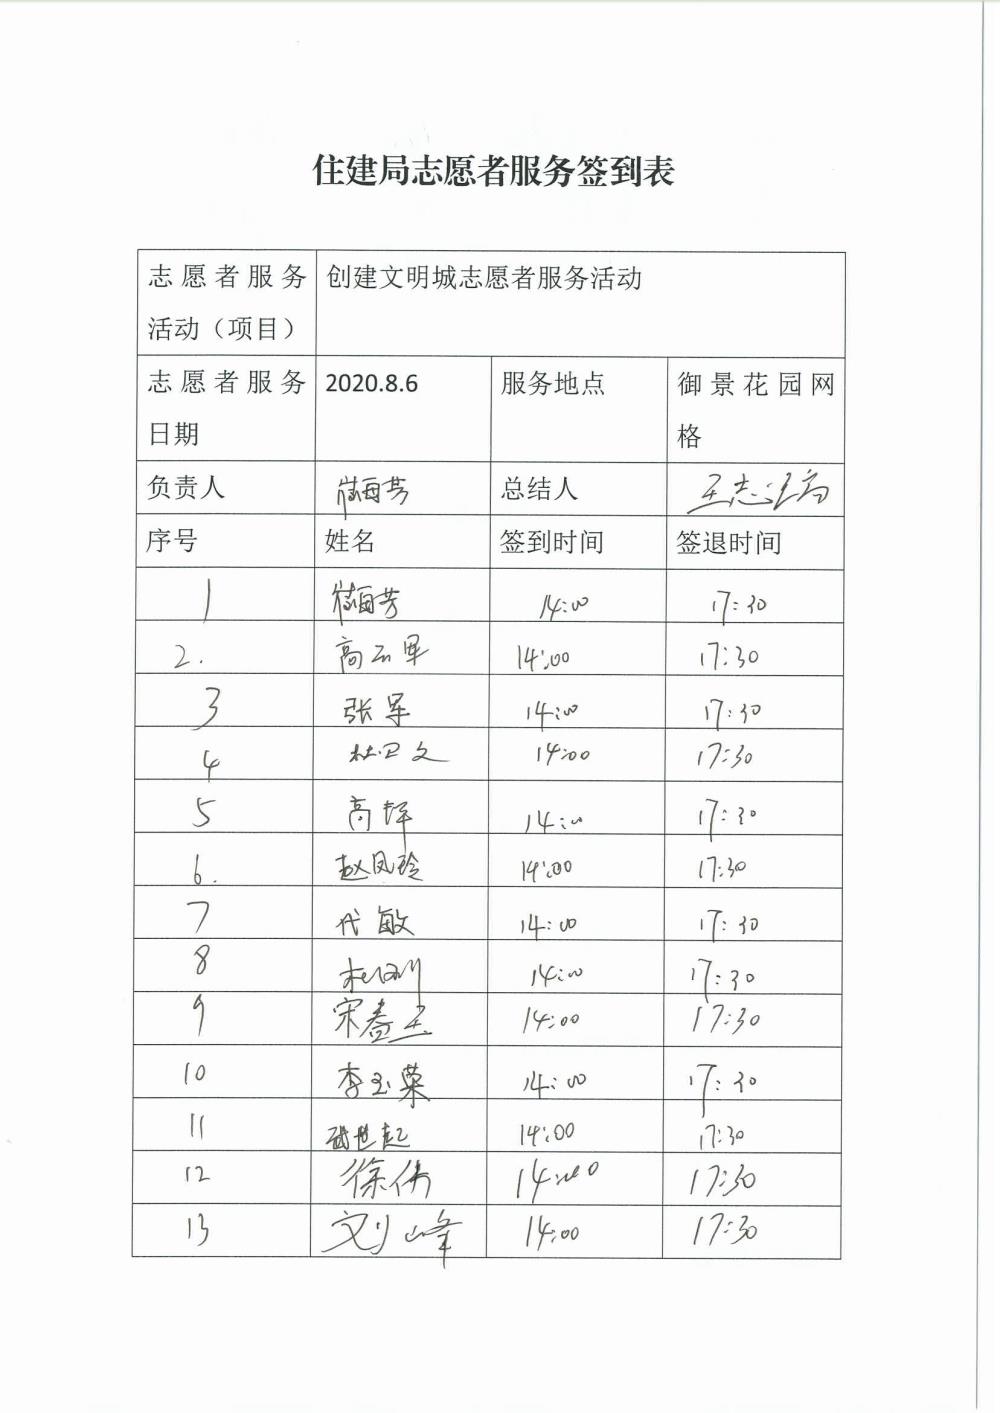 住建局志愿者服务签到表
志愿者服务 创建文明城志愿者服务活动
活动（项目）
志愿者服务 2020.8.6 服务地点 御景花园网
日期 格
负责人 崔梅芳 总结人
序号 姓名 签到时间 签退时间
1 崔梅芳 14:00 17:30
2. 高云军 14:00 17:30
3 张军 14:00 17:30
4 杜卫文 14:00 17:30
5 高坪 14:00 17:30
6. 赵凤玲 14:00 17:30
7 代敏 14:00 17:30
8 14:00 17:30
9 宋春玉 14:00 17:30
10 李玉荣 14:00 17:30
11 14:00 17:30
12 徐伟 14:00 17:30
13 刘峰 14:00 17:30